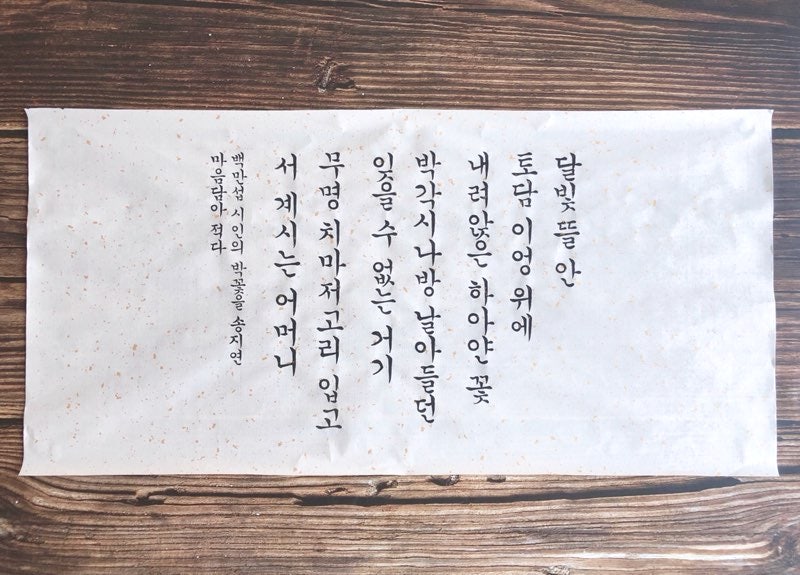 달빛 뜰 안
토담 이엉 위에
내려앉은 하아얀 꽃
박각시나방 날아들던
잊을 수 없는 거기
무명 치마저고리 입고
서 계시는 어머니
백만섭 시인의 박꽃을 송지연
마음담아 적다